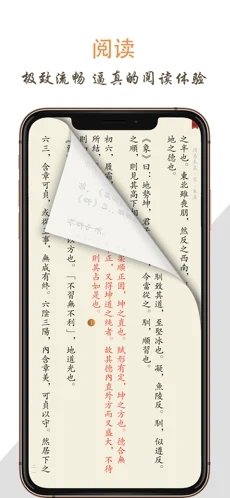 阅读
极致流畅 逼真的阅读体验
之辛也。東北雖喪朋，然反之西南，
地之德也。
《象》曰：地勢坤，君子
之順，則見其高下
初六，履霜
所結，
馴致其道，至堅冰也。凝，魚陵反。馴，似遵反。
今當從之。馴，順習也。
柔順正固，坤之直也。賦形有定，坤之方也。德合無
正，又得坤道之純者。故其德內直外方而又盛大，不待
則其占如是也。
以方也。「不習無不利」，地道光也。
六三，含章可貞，或從 事，無成有終。六陰三陽，內含章美，可貞以守。然居下之